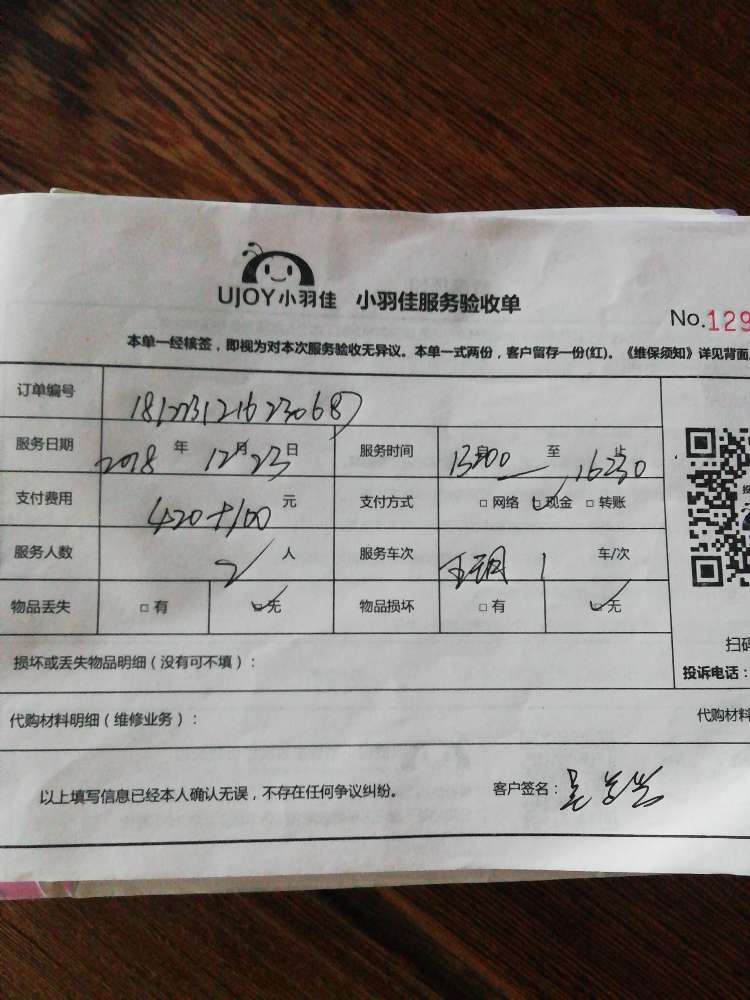 UJOY小羽佳 小羽佳服务验收单
No.129
本单一经核签，即视为对本次服务验收无异议。本单一式两份，客户留存一份(红)。《维保须知》详见背面
订单编号
服务日期 2018 年 12 月 23 日 服务时间 13:00 至 16:30 止
支付费用 420+100 元 支付方式 □ 网络 □ 现金 □ 转账
服务人数 2 人 服务车次 1 车/次
物品丢失 □ 有 □ 无 物品损坏 □ 有 □ 无
扫码
损坏或丢失物品明细（没有可不填）： 投诉电话：
代购材料明细（维修业务）： 代购材料
以上填写信息已经本人确认无误，不存在任何争议纠纷。 客户签名：